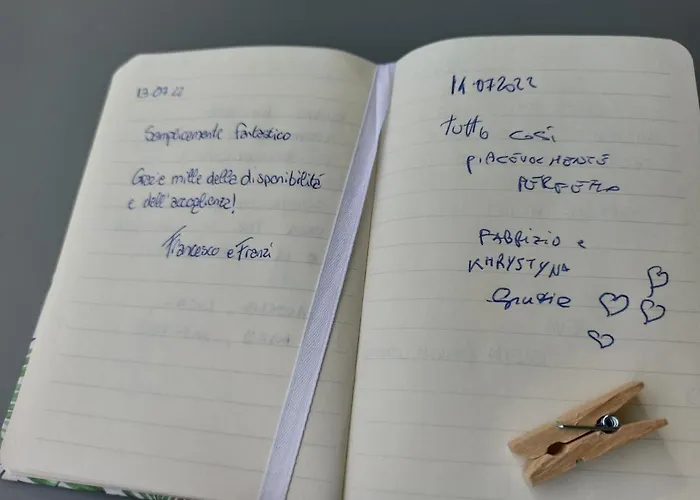 13.07.22
Semplicemente fantastico
Grazie mille della disponibilità
e dell'accoglienza!
Francesco e Franzi
14.072022
Tutto così
piACEVOLMENTE
PERFETTO
FABRIZIO e
KHRYSTYNA
Grazie